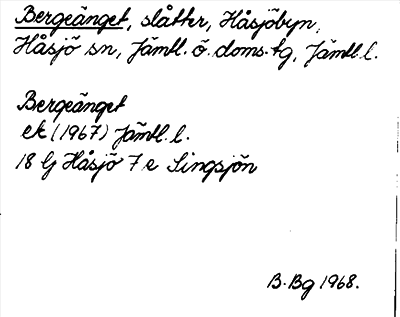 Bergeänget, slåtter, Håsjöbyn,
Håsjö sn, Jämtl. ö. doms. tg, Jämtl. l.
Bergeänget
ek (1967) Jämtl. l.
18 G Håsjö 7 e Singsjön
B. Bg 1968.